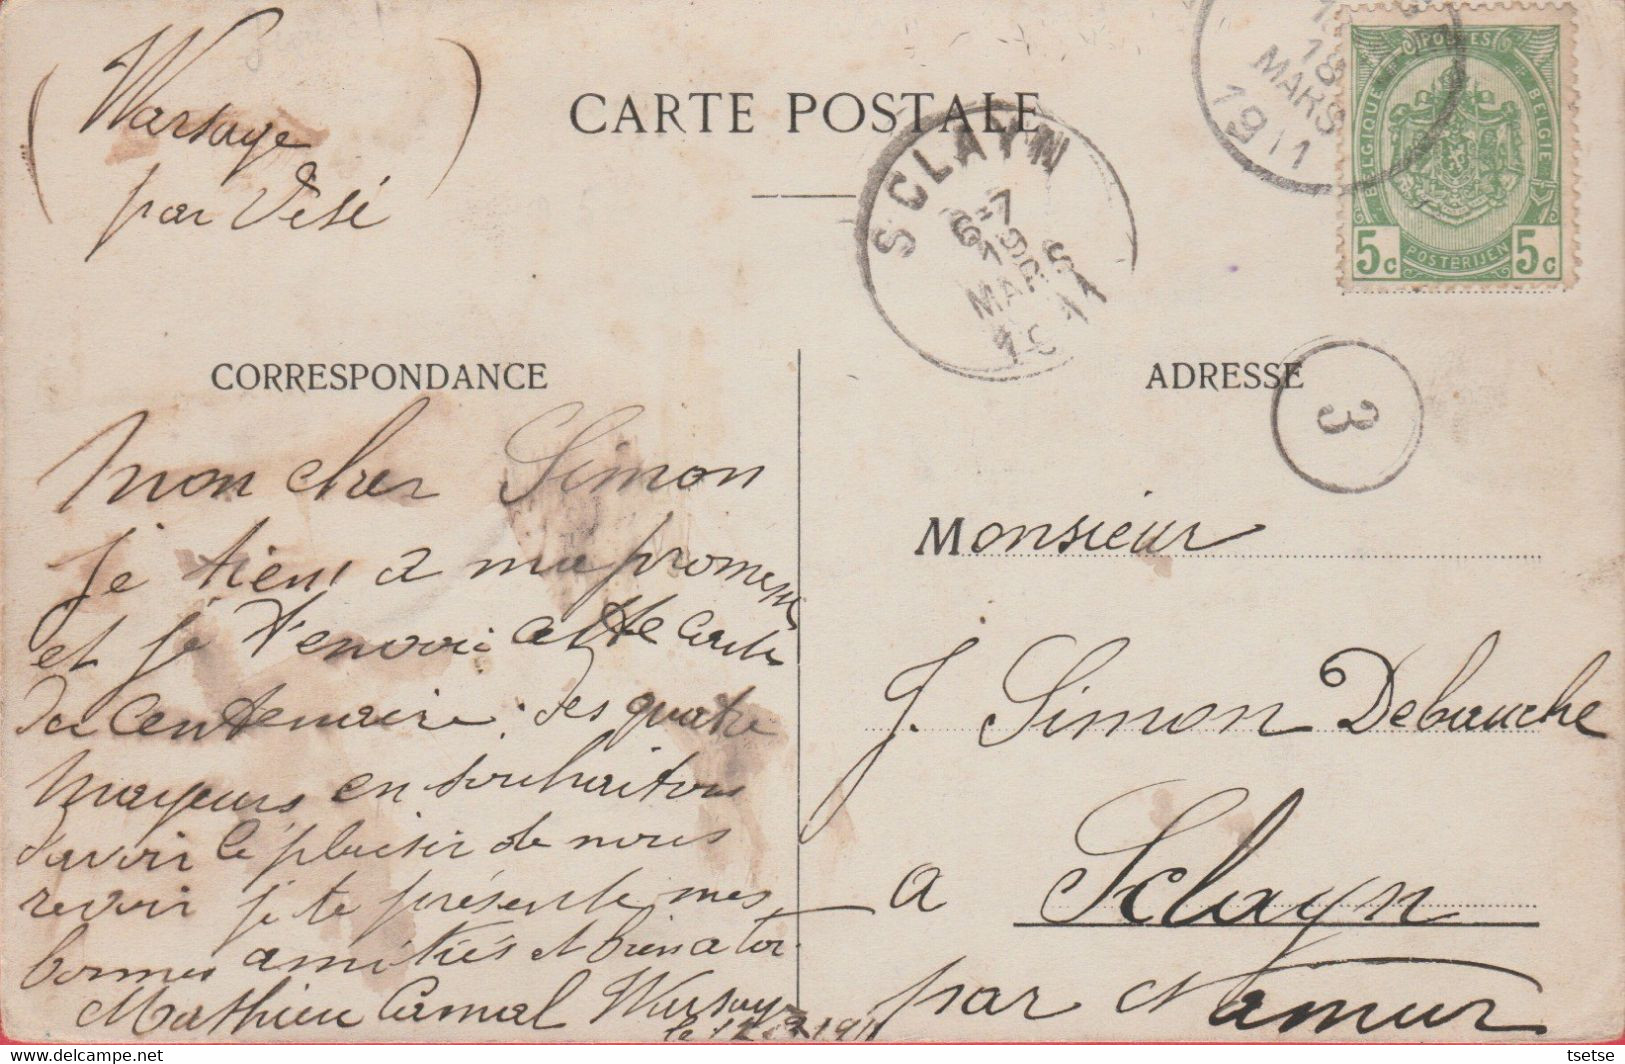 (Warsage
par Visé)
CARTE POSTALE
SCLAYN
6-7
19
MARS
1911
18
MARS
1911
POSTES
BELGIQUE
BELGIE
5c
5c
POSTERIJEN
CORRESPONDANCE
ADRESSE
3
mon cher Simon
je tiens a ma promesse
et je t'envoi cette carte
du Centenaire des quatre
mayeurs en souhaitons
davoir le plaisir de nous
revoir je te présente mes
bonnes amitiés et bien a toi
Mathieu Warsage
le 1911
Monsieur
J. Simon Debauche
a Sclayn
par Namur
tsetse